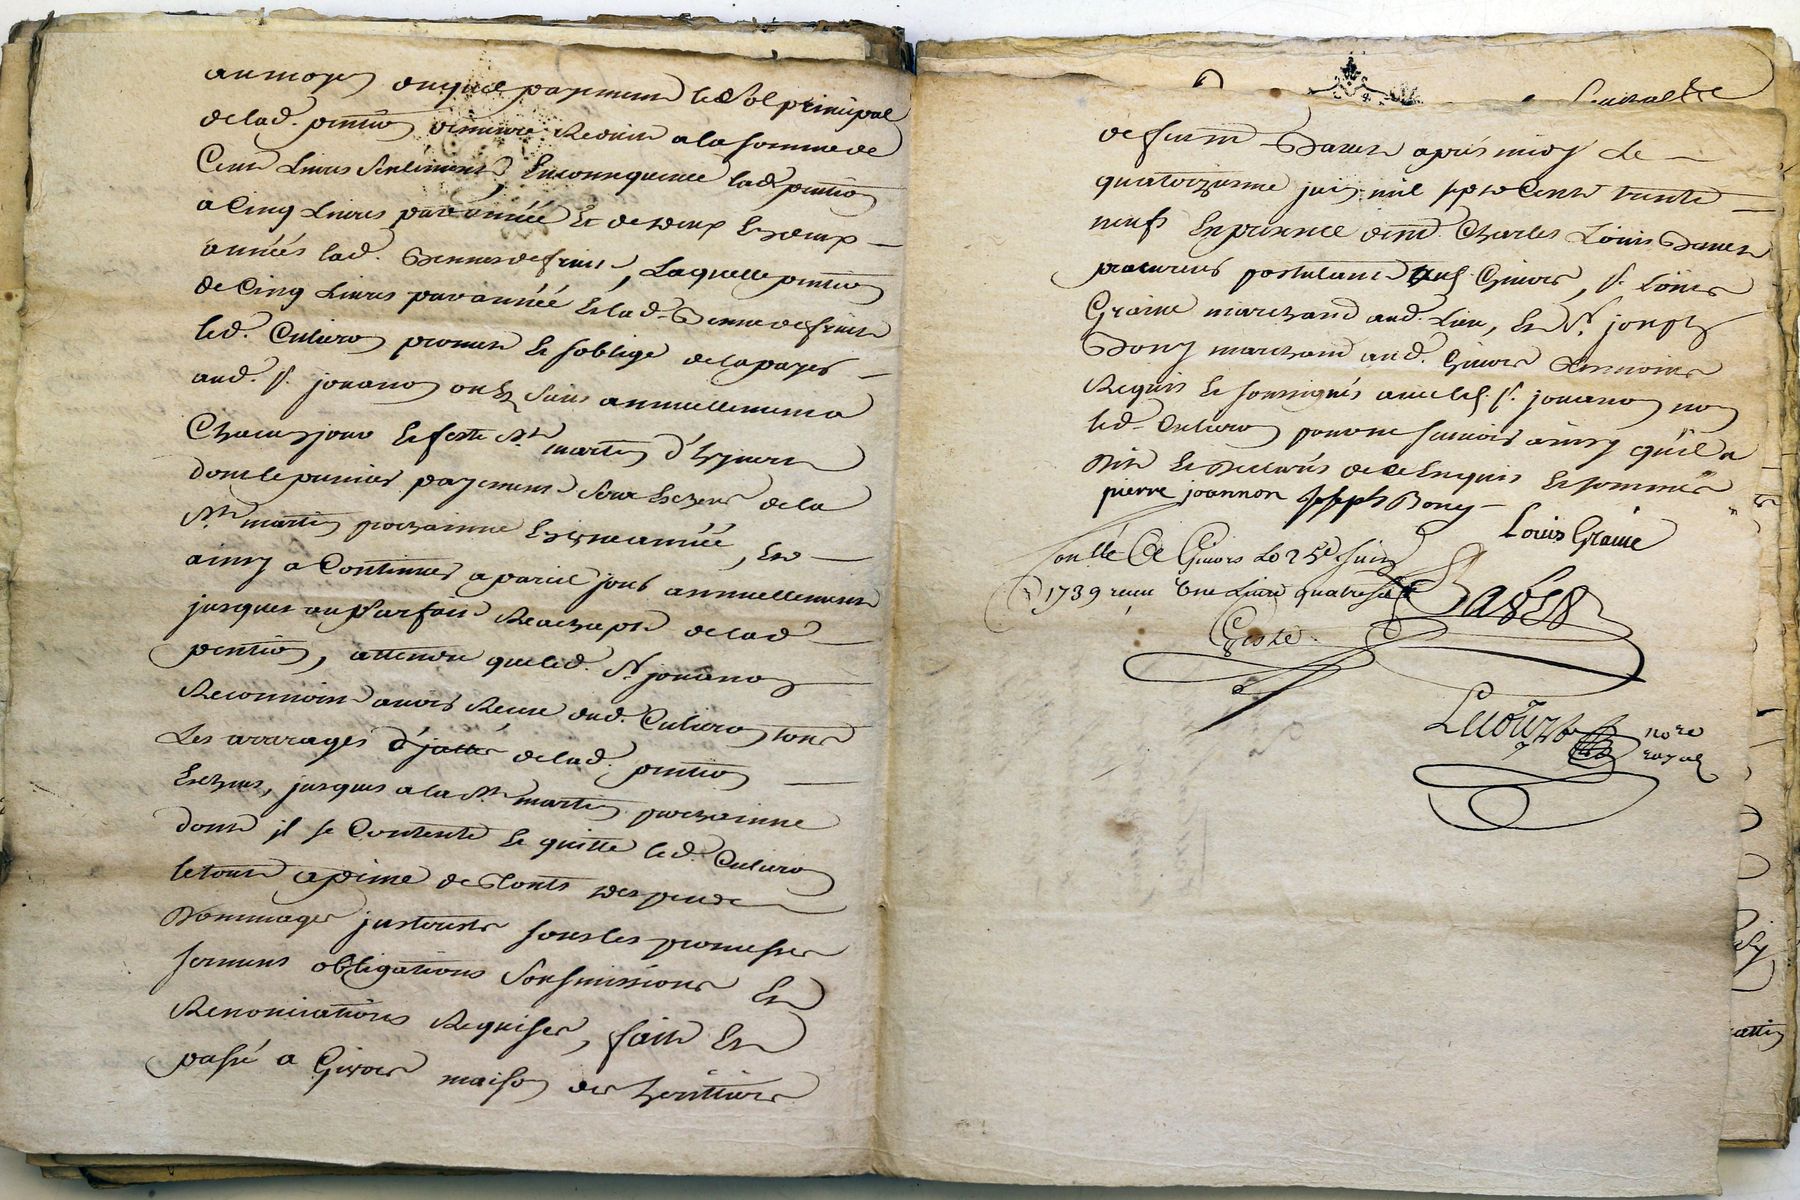 au moyen duquel payement led. sol principal
de lad. pention demeure Reduit a la somme de
Cent Livres seulement, En consequence lad. pention
a Cinq Livres par année Et de deux En deux
années lad. Benne de fruit, Laquelle pention
de Cinq Livres par année & lad. Benne de fruit
led. Cutieron promet & s'oblige de la payer
aud. sr. jouanon ou es siens annuellement a
Chacun jour & feste St martin d'hyver
dont le premier payement sera Escheu de la
St martin prochainne En une année, Et
ainsy a Continuer a pareil jour annuellement
jusques au parfait Reachapt de lad.
pention, attendu que led. Sr. jouanon
Reconnoit avoir Receu dud. Cutieron tous
Les arrerages de lad. pention
Escheus, jusques a la St martin prochainne
dont il se Contente & quitte led. Cutieron
le tout a peine de touts despends
Dommages sous les promesses
serment obligations soubmissions Et
Renonciations Requises, fait Et
passé a Givors maison des heritiers
de Banet après midy Le
quatorzieme juin mil sept Cents trente
neuf En presence de Me. Charles Louis
procureur postulant aud. Givors, sr. Louis
Graine marchand aud. Lieu, Et Sr. joseph
Bony marchand aud. Givors temoins
Requis & soussignés avec led. sr. jouanon non
led. Cutieron pour ne sçavoir ainsy qu'il a
Dit & Declaré de ce Enquis & sommé
pierre joannon Joseph Bony
Louis Graine
Conllé Ce Givors Le 25e Juin
1739 receu Une Livre quatre sols
nore
royal